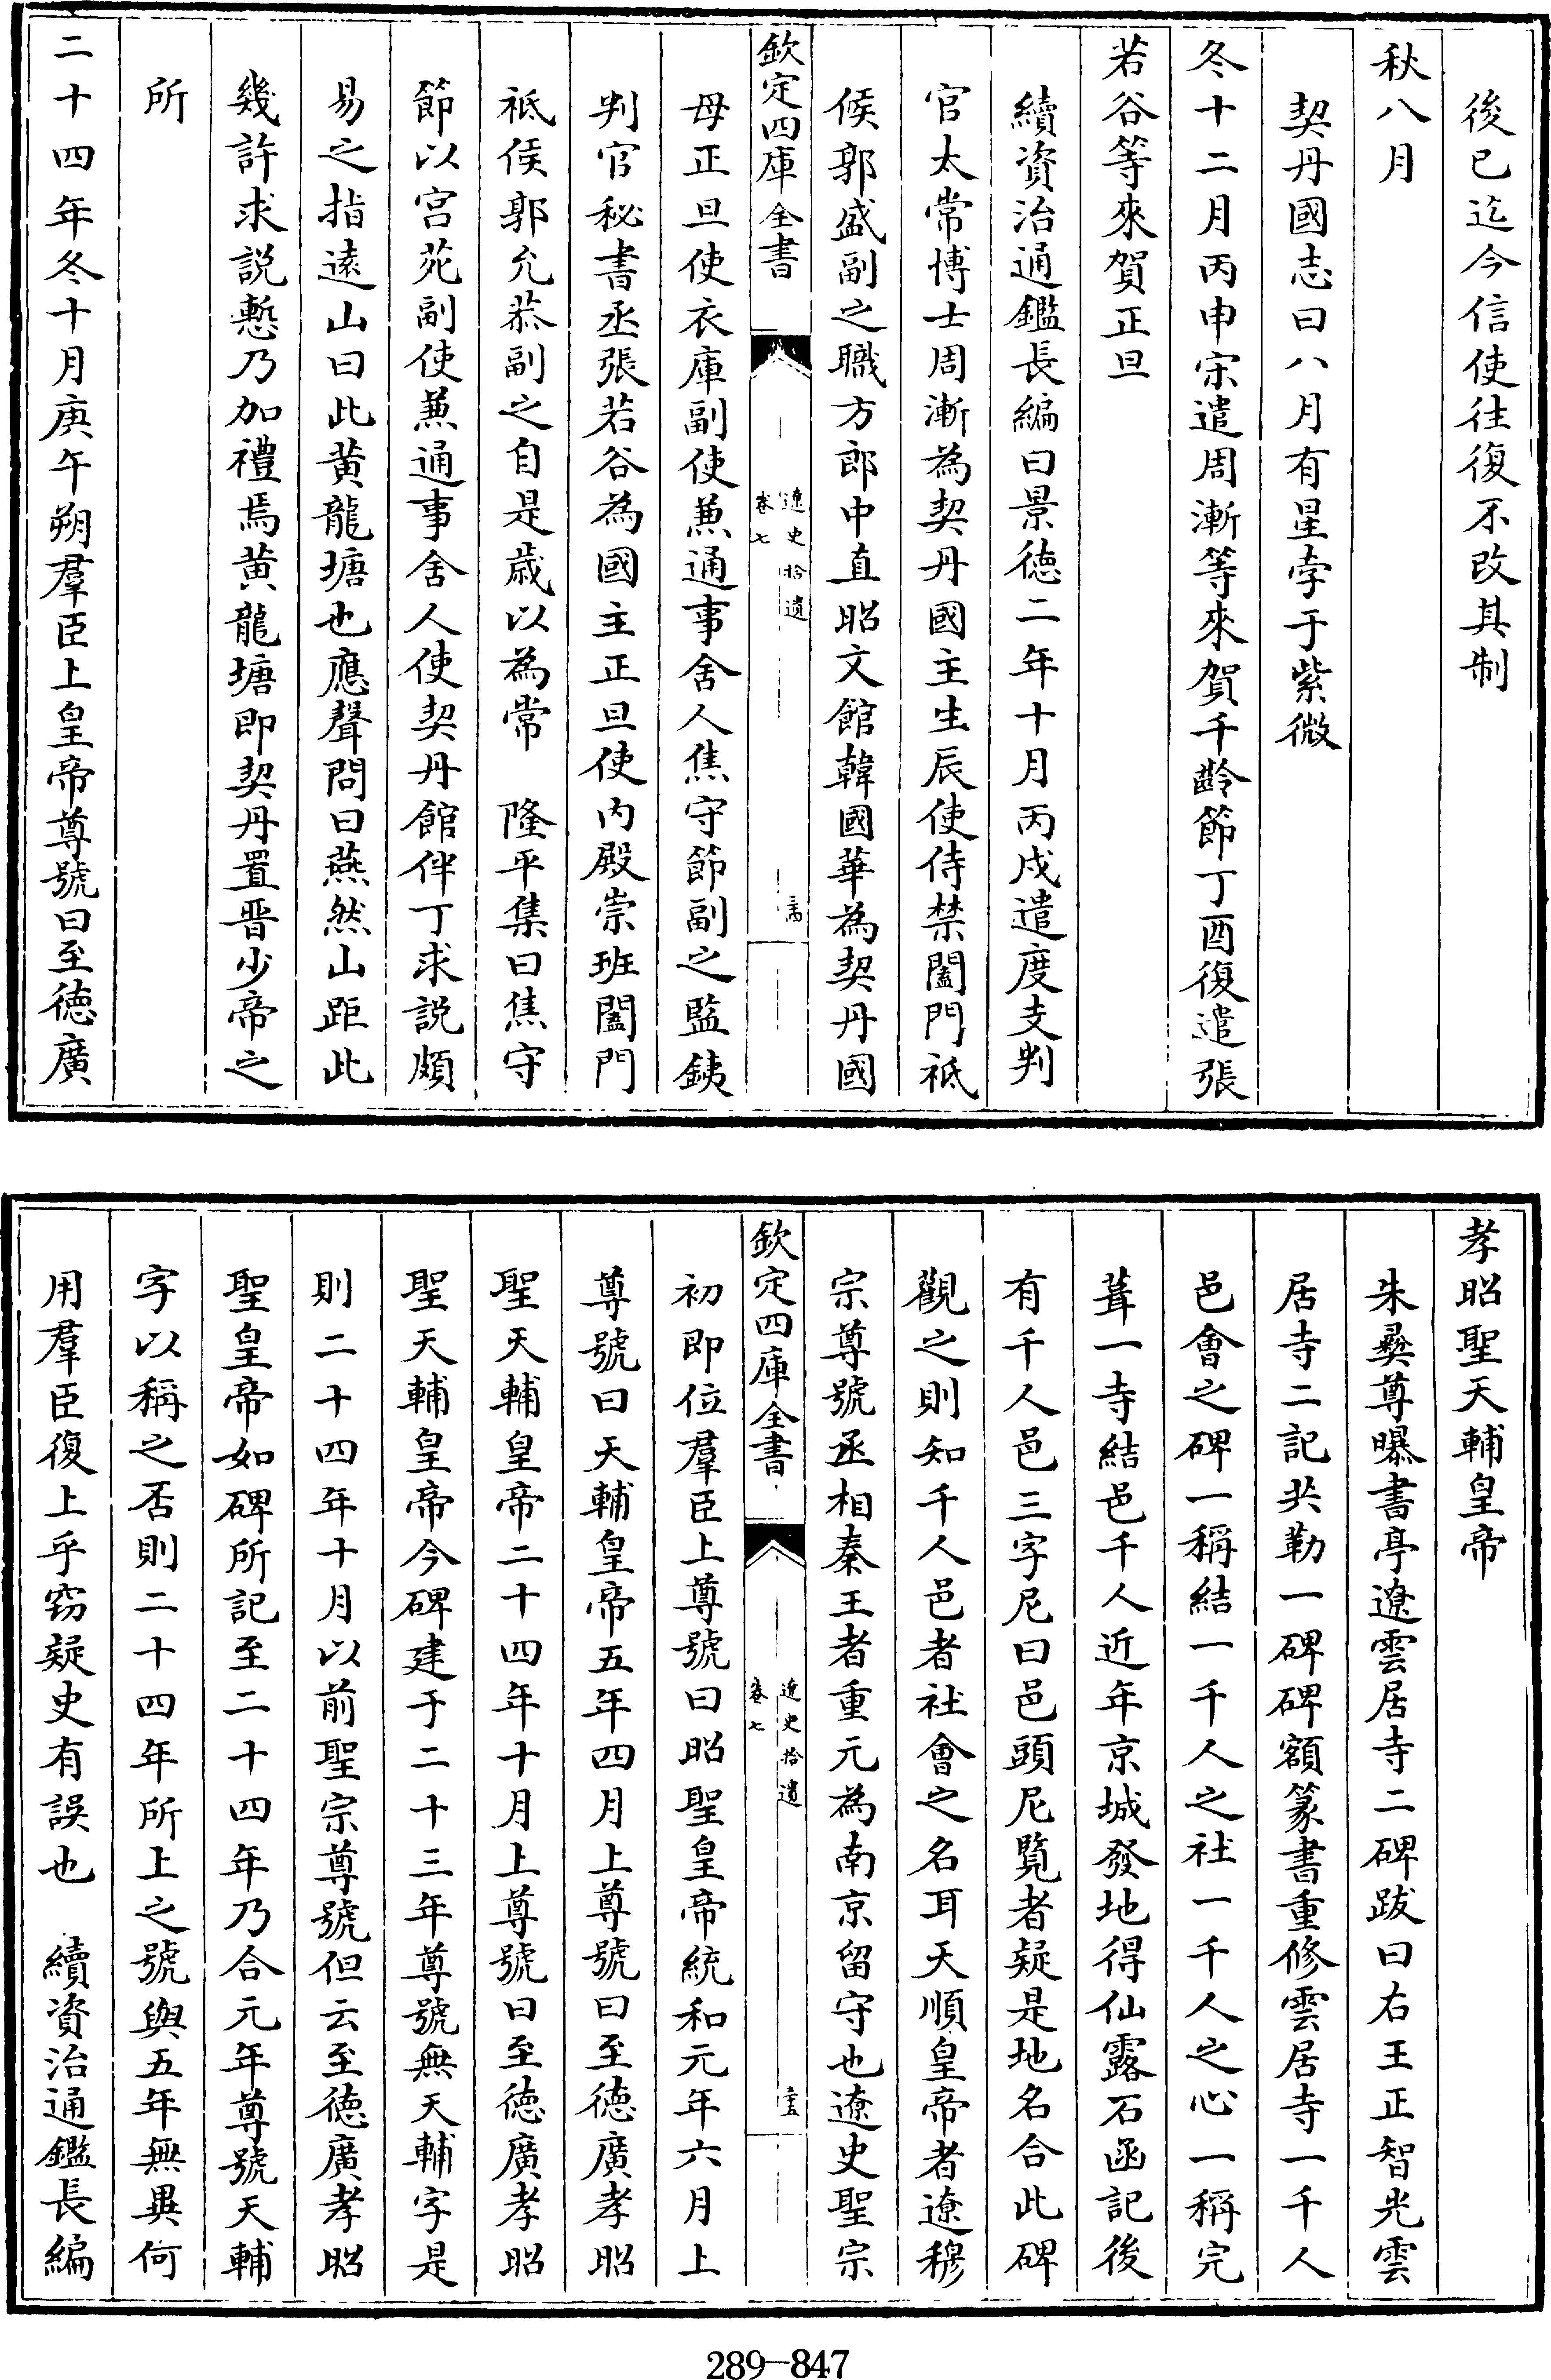 後已迄今信使往復不改其制
秋八月
契丹國志曰八月有星孛于紫微
冬十二月丙申宋遣周漸等來賀千齡節丁酉復遣張
若谷等來賀正旦
續資治通鑑長編曰景徳二年十月丙戌遣度支判
官太常博士周漸為契丹國主生辰使侍禁閤門祗
候郭盛副之職方郎中直昭文館韓國華為契丹國
欽定四庫全書
遼史拾遺
卷七
母正旦使衣庫副使兼通事舍人焦守節副之監鐵
判官秘書丞張若谷為國主正旦使内殿崇班閤門
祗候郭允恭副之自是歳以為常　隆平集曰焦守
節以宫苑副使兼通事舍人使契丹館伴丁求説頗
易之指逺山曰此黄龍塘也應聲問曰燕然山距此
幾許求説慙乃加禮焉黄龍塘即契丹置晋少帝之
所
二十四年冬十月庚午朔羣臣上皇帝尊號曰至徳廣
孝昭聖天輔皇帝
朱彝尊曝書亭遼雲居寺二碑跋曰右王正智光雲
居寺二記共勒一碑碑額篆書重修雲居寺一千人
邑會之碑一稱結一千人之社一千人之心一稱完
葺一寺結邑千人近年京城發地得仙露石函記後
有千人邑三字尼曰邑頭尼覽者疑是地名合此碑
觀之則知千人邑者社會之名耳天順皇帝者遼穆
宗尊號丞相秦王者重元為南京留守也遼史聖宗
欽定四庫全書
遼史拾遺
卷七
初即位羣臣上尊號曰昭聖皇帝統和元年六月上
尊號曰天輔皇帝五年四月上尊號曰至徳廣孝昭
聖天輔皇帝二十四年十月上尊號曰至徳廣孝昭
聖天輔皇帝今碑建于二十三年尊號無天輔字是
則二十四年十月以前聖宗尊號但云至徳廣孝昭
聖皇帝如碑所記至二十四年乃合元年尊號天輔
字以稱之否則二十四年所上之號與五年無異何
用羣臣復上乎窃疑史有誤也　續資治通鑑長編
289-847